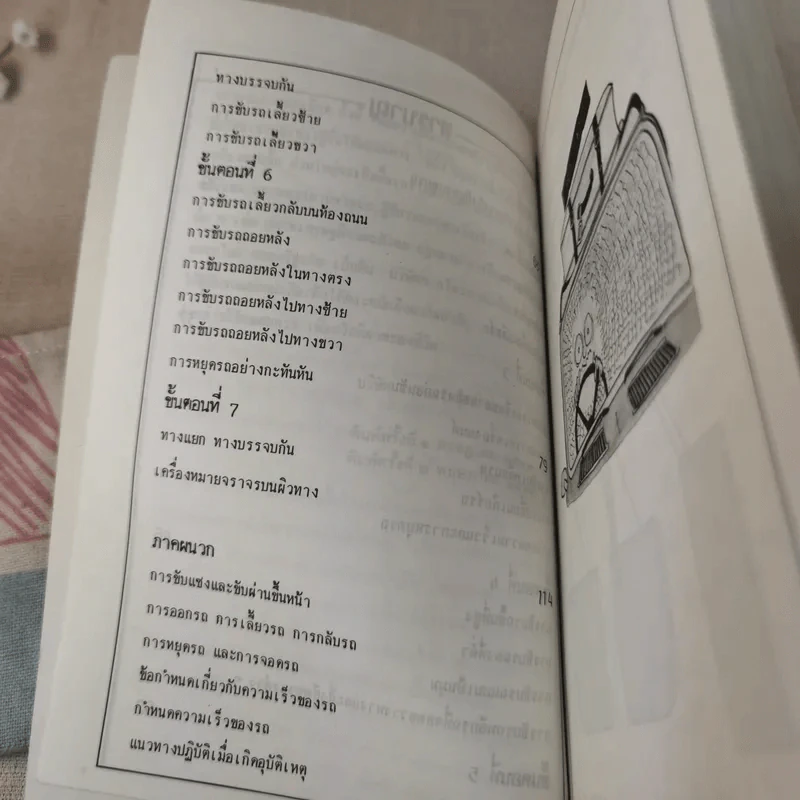 ทางบรรจบกัน
การขับรถเลี้ยวซ้าย
การขับรถเลี้ยวขวา
ขั้นตอนที่ 6
การขับรถเลี้ยวกลับบนท้องถนน
การขับรถถอยหลัง
การขับรถถอยหลังในทางตรง
การขับรถถอยหลังไปทางซ้าย
การขับรถถอยหลังไปทางขวา
การหยุดรถอย่างกะทันหัน
ขั้นตอนที่ 7 79
ทางแยก ทางบรรจบกัน
เครื่องหมายจราจรบนผิวทาง
ภาคผนวก 114
การขับแซงและขับผ่านขึ้นหน้า
การออกรถ การเลี้ยวรถ การกลับรถ
การหยุดรถ และการจอดรถ
ข้อกำหนดเกี่ยวกับความเร็วของรถ
กำหนดความเร็วของรถ
แนวทางปฏิบัติเมื่อเกิดอุบัติเหตุ